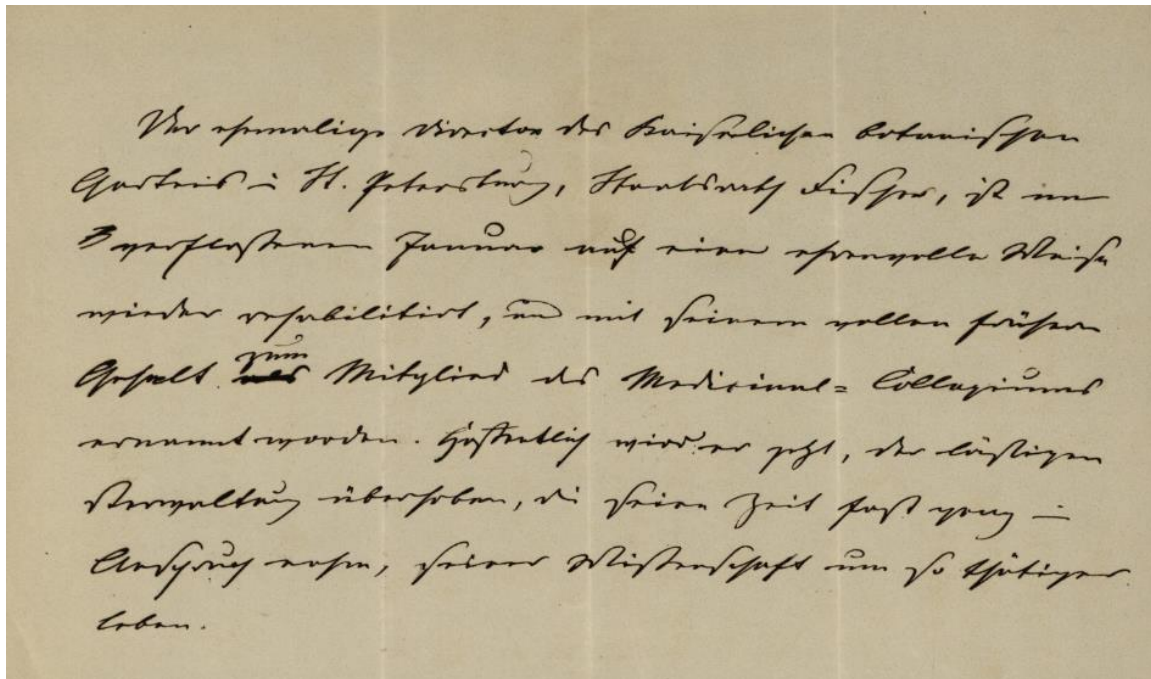 Der ehemalige Director des Kaiserlichen botanischen
Gartens in St. Petersburg, Staatsrath Fischer, ist im
verflossenen Januar auf eine ehrenvolle Weise
wieder rehabilitirt, und mit seinem vollen frühern
Gehalt zum Mitglied des Medicinal=Collegiums
ernannt worden. Hoffentlich wird er jetzt, der lästigen
Verwaltung überhoben, die seine Zeit fast ganz in
Anspruch nahm, seiner Wissenschaft um so thätiger
leben.